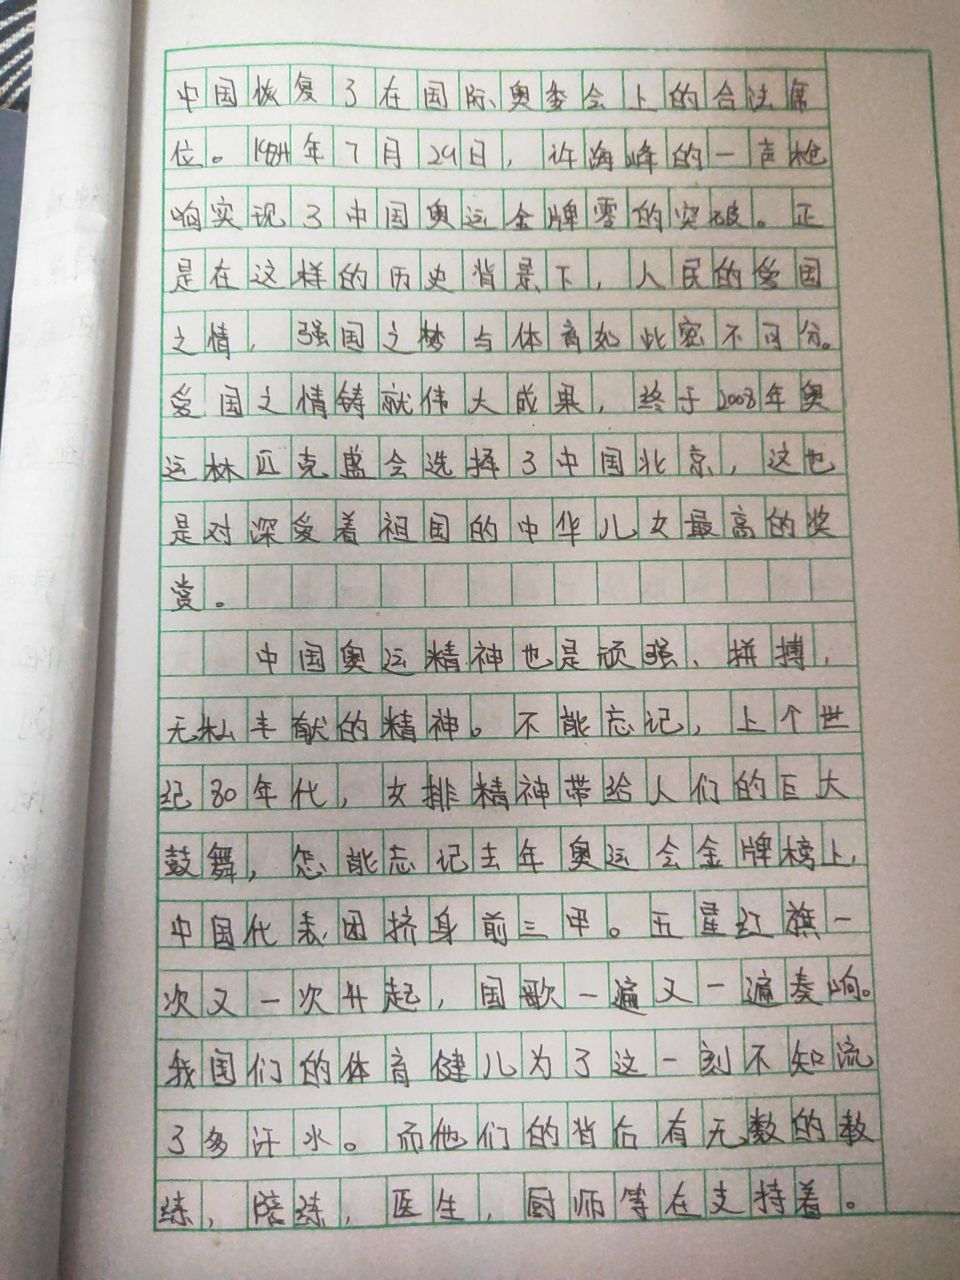 中国恢复了在国际奥委会上的合法席
位。1984年7月29日，许海峰的一声枪
响实现了中国奥运金牌零的突破。正
是在这样的历史背景下，人民的爱国
之情，强国之梦与体育如此密不可分。
爱国之情铸就伟大成果，终于2008年奥
运林匹克盛会选择了中国北京，这也
是对深爱着祖国的中华儿女最高的奖
赏。
中国奥运精神也是顽强、拼搏，
无私丰献的精神。不能忘记，上个世
纪80年代，女排精神带给人们的巨大
鼓舞，怎能忘记去年奥运会金牌榜上，
中国代表团挤身前三甲。五星红旗一
次又一次升起，国歌一遍又一遍奏响。
我国们的体育健儿为了这一刻不知流
了多汗水。而他们的背后有无数的教
练，陪练，医生，厨师等在支持着。